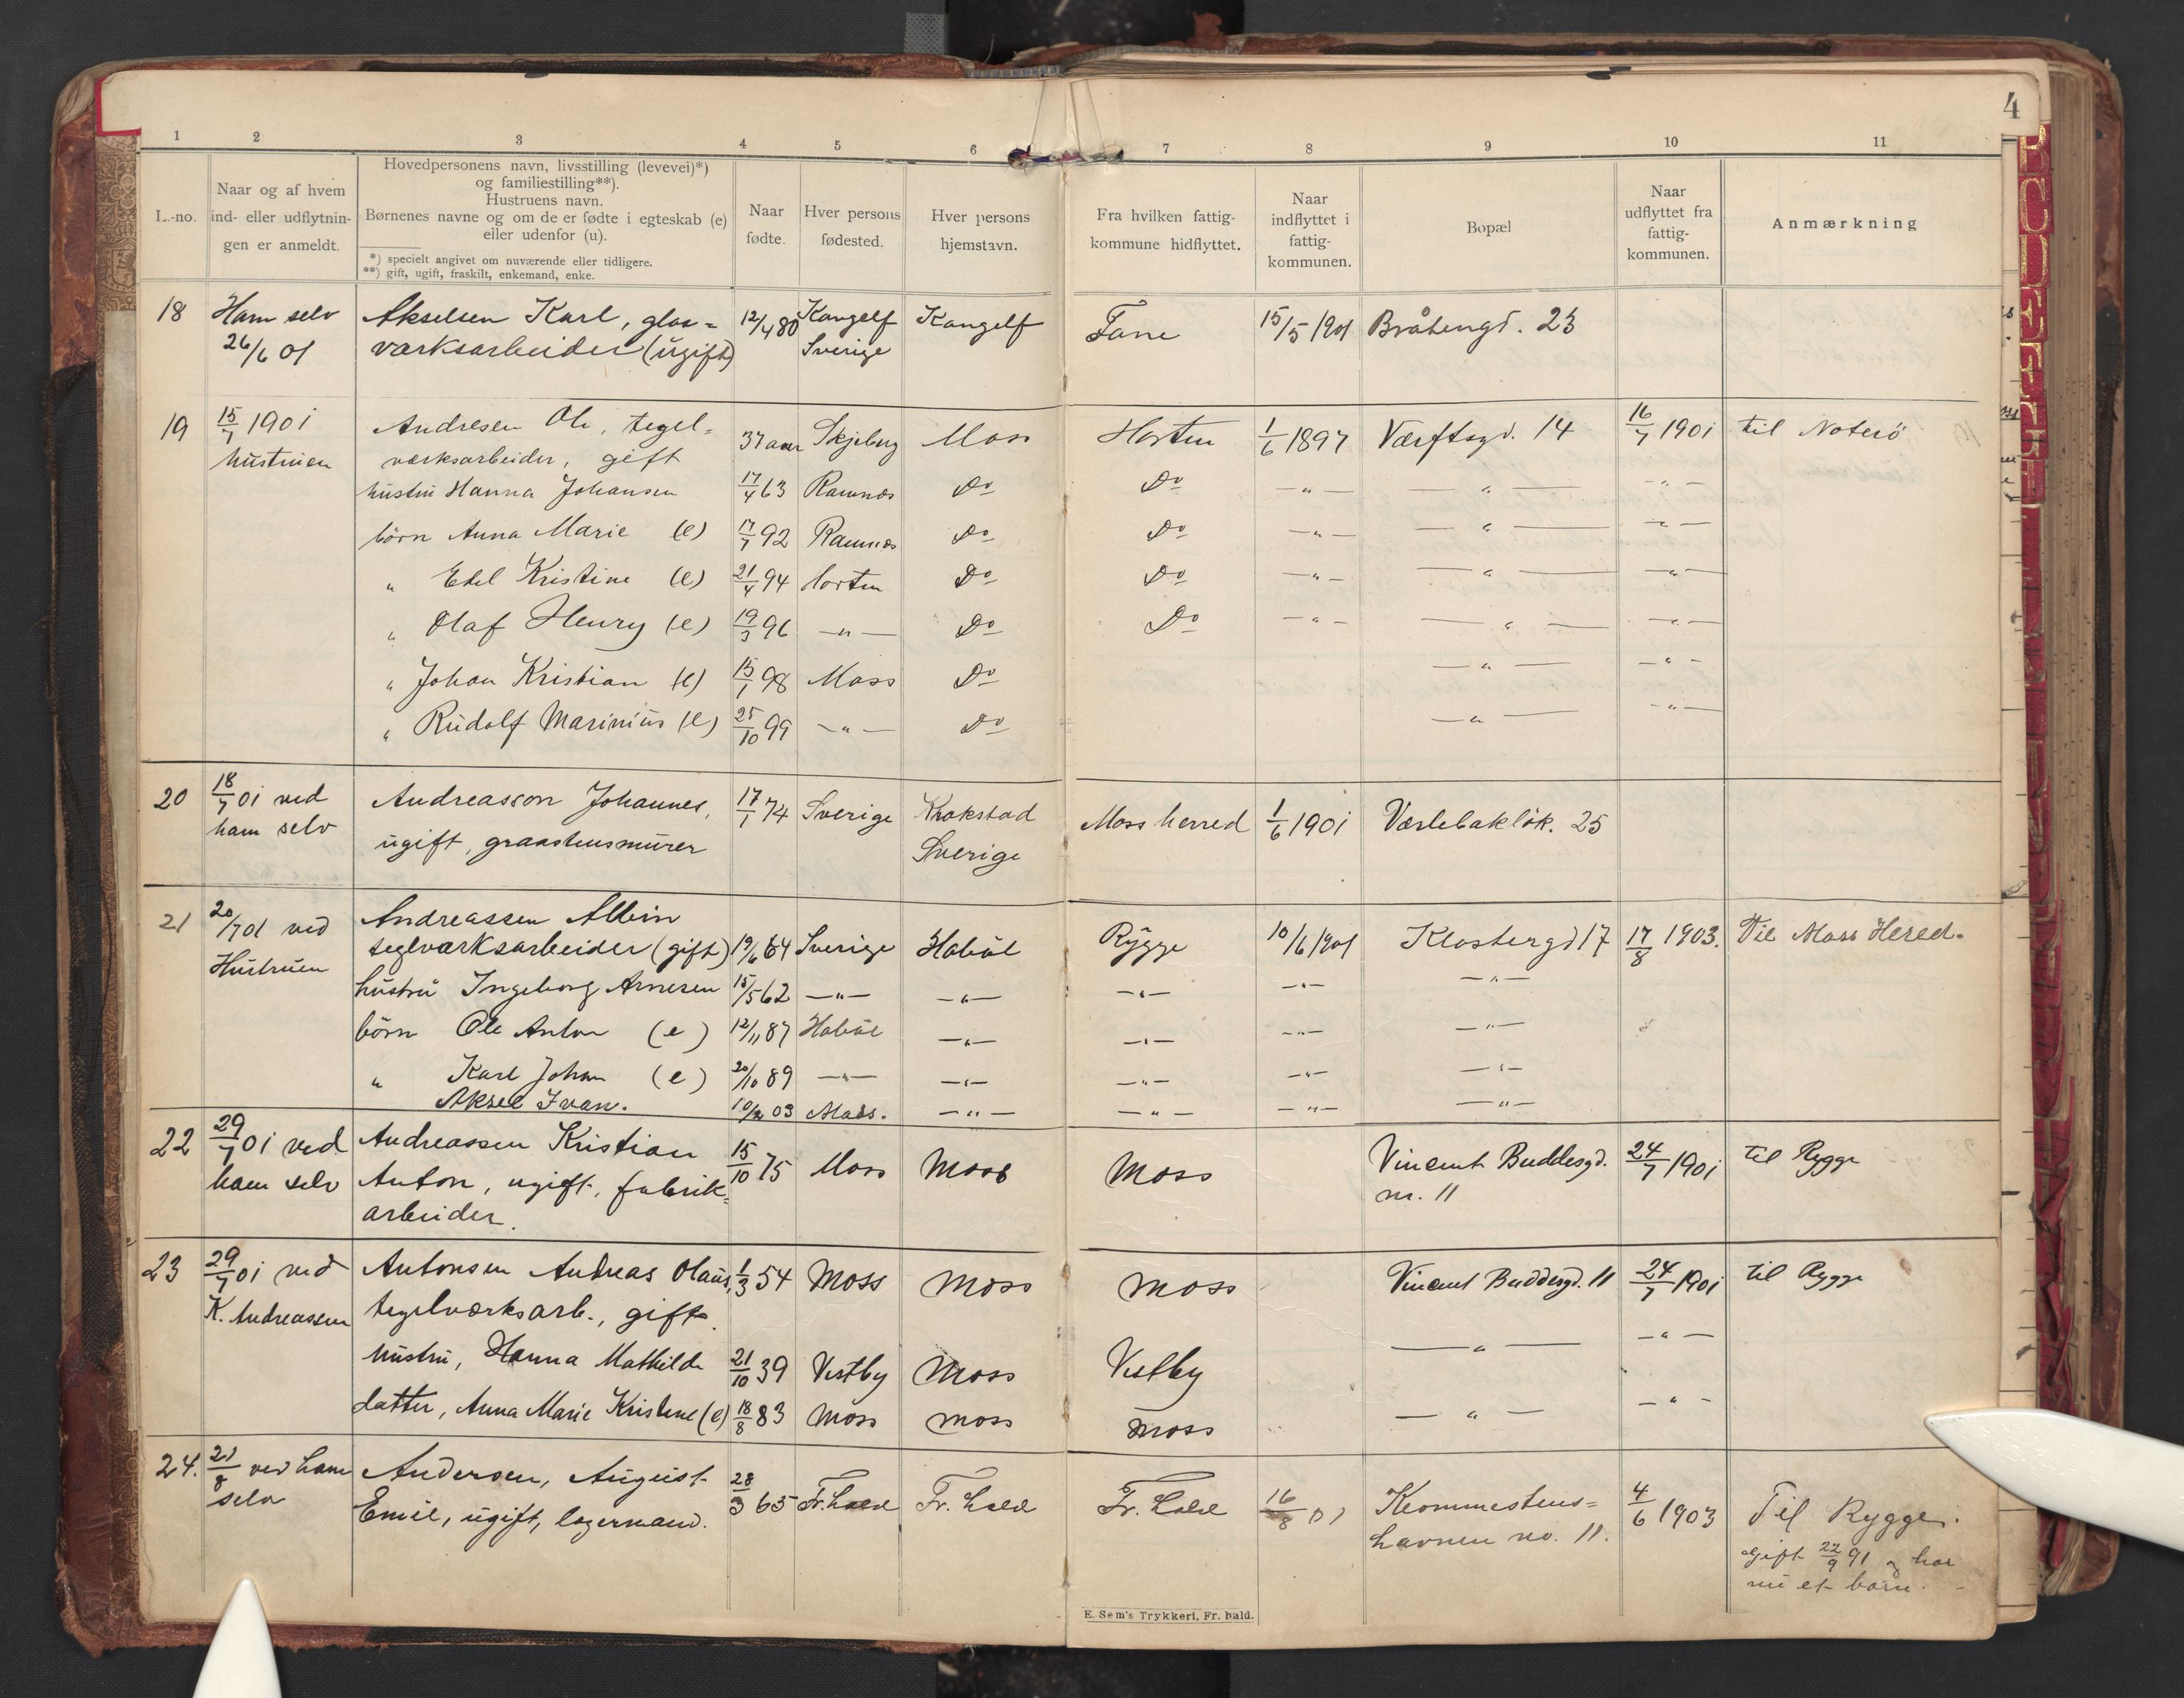 4
1 2 3 4 5 6 7 8 9 10 11
L.-no.
Naar og af hvem
ind- eller udflytnin-
gen er anmeldt.
Hovedpersonens navn, livsstilling (levevei)*)
og familiestilling**).
Hustruens navn.
Børnenes navne og om de er fødte i egteskab (e)
eller udenfor (u).
*) specielt angivet om nuværende eller tidligere.
**) gift, ugift, fraskilt, enkemand, enke.
Naar
fødte.
Hver persons
fødested.
Hver persons
hjemstavn.
Fra hvilken fattig-
kommune hidflyttet.
Naar
indflyttet i
fattig-
kommunen.
Bopæl
Naar
udflyttet fra
fattig-
kommunen.
Anmærkning
18 Ham selv Akselsen Karl, glas= 12/4 80 Kongelf Kongelf Tane 15/5 1901 Bråtengd. 23
26/6 01 værksarbeider (ugift) Sverige
19 15/7 1901 Andresen Ole, tegel= 37 aar Skjeberg Moss Horten 1/6 1897 Værftsgd. 14 16/7 1901 til Noterö
hustruen værksarbeider, gift
hustru Hanna Johansen 17/4 63 Ramnæs Do Do — " — — " — — " —
börn Anna Marie (e) 17/7 92 Ramnæs Do Do — " — — " — — " —
" Edel Kristine (e) 21/4 94 Horten Do Do — " — — " — — " —
" Olaf Henry (e) 19/3 96 — " — Do Do — " — — " — — " —
" Johan Kristian (e) 15/1 98 Moss Do — " — — " —
" Rudolf Marinius (e) 25/10 99 — " — Do — " — — " —
20 18/7 01 ved Andreasson Johannes, 17/1 74 Sverige Krokstad Moss herred 1/6 1901 Værlebaklök. 25
ham selv ugift, graastensmurer Sverige
21 20/7 01 ved Andreassen Albin
Hustruen teglværksarbeider (gift) 19/6 64 Sverige Habøl Rygge 10/6 1901 Klostergd 17 17/8 1903. Til Moss Hered.
hustru Ingeborg Arnesen 15/5 62 — " — — " — — " — — " — — " —
börn Ole Anton (e) 12/11 87 Habøl — " — — " — — " — — " —
" Karl Johan (e) 20/10 89 — " — — " — — " — — " — — " —
Aksel Ivan. 10/2 03 Moss. — " — — " — — " — — " —
22 29/7 01 ved Andreassen Kristian 15/10 75 Moss Moss Moss Vincent Buddesgd. 24/7 1901 til Rygge
ham selv Anton, ugift, fabrik= nr. 11
arbeider.
23 29/7 01 ved Antonsen Andreas Olaus, 1/3 54 Moss Moss Moss Vincent Buddesgd. 11 24/7 1901 til Rygge
K. Andreassen tegelværksarb., gift.
hustru, Hanna Mathilde 21/10 39 Vestby Moss Vestby — " — — " —
datter, Anna Marie Kristine (e) 18/8 83 Moss Moss Moss — " — — " —
24. 21/8 ved ham Andersen, August 28/3 65 Fr.hald Fr. hald Fr. hald 16/8 01 Krommestens= 4/6 1903 Til Rygge.
selv Emil, ugift, lagermand. havnen no. 11.
Gift 22/9 91 og har
nu et barn.
E. Sem's Trykkeri, Fr. hald.